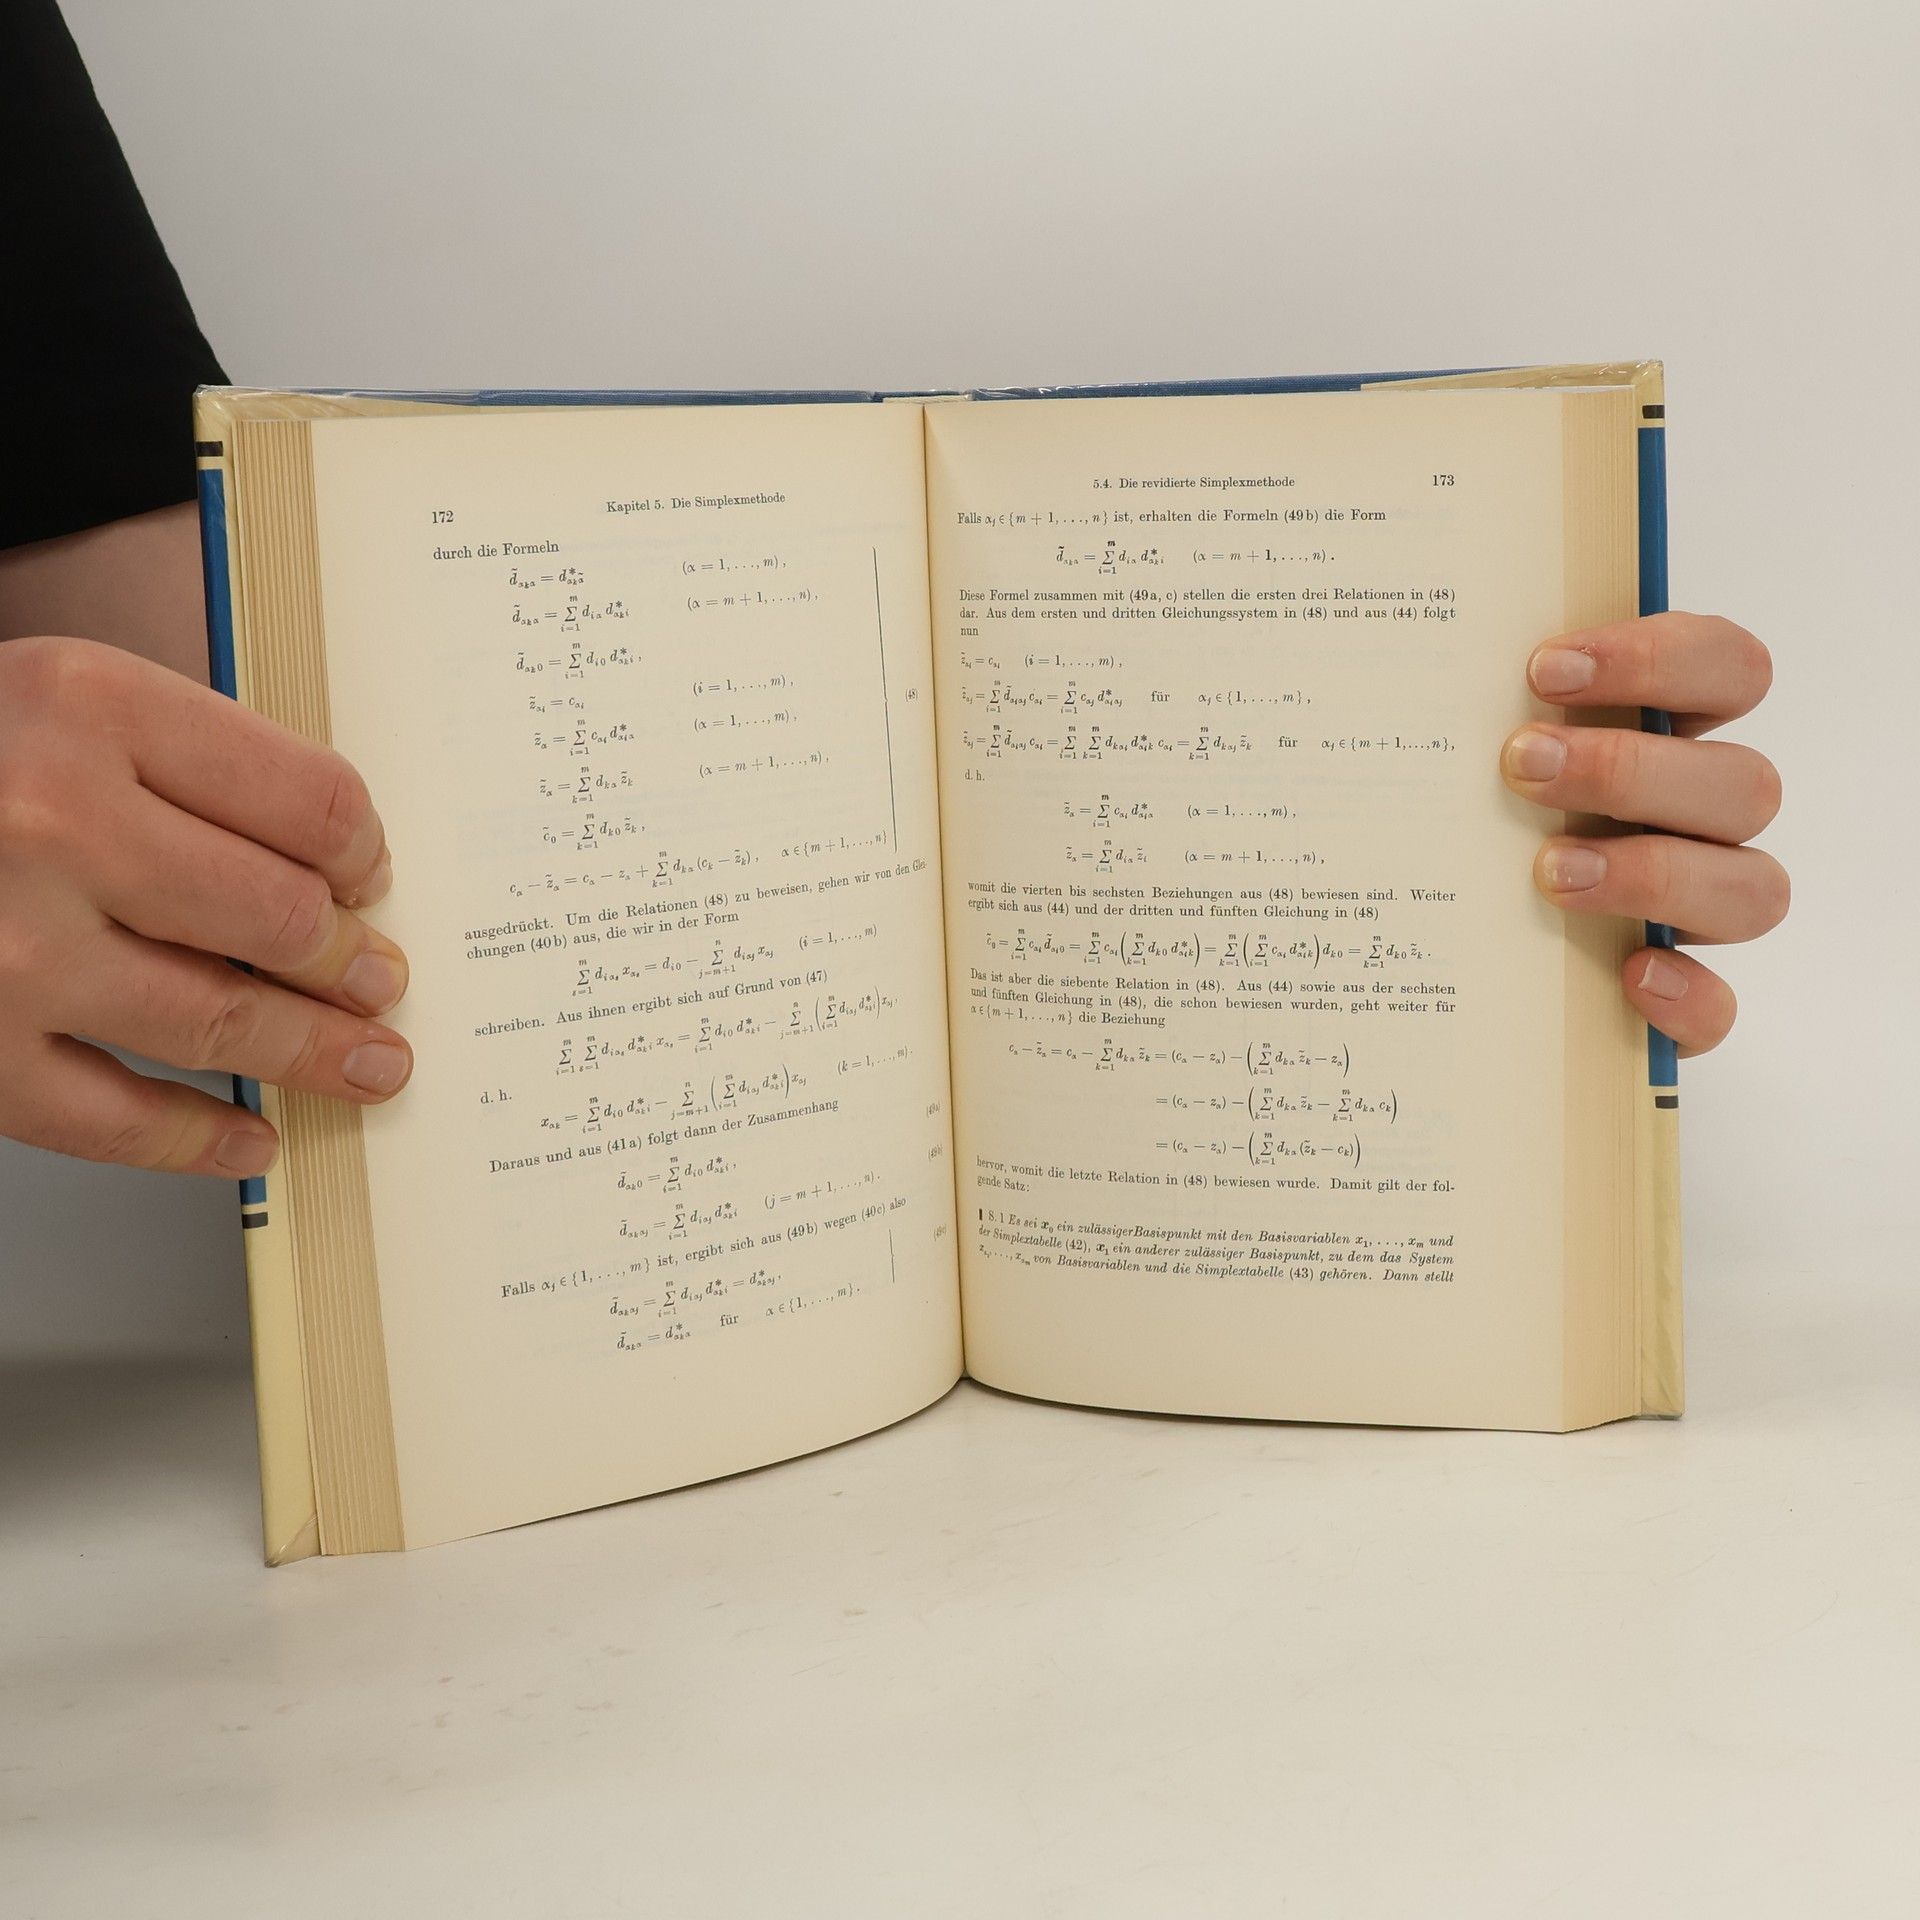 172
Kapitel 5. Die Simplexmethode
durch die Formeln
d̃_{α_k α} = d*_{α_k α̃} (α = 1, . . ., m) ,
d̃_{α_k α} = Σ_{i=1}^{m} d_{iα} d*_{α_k i} (α = m + 1, . . ., n) ,
d̃_{α_k 0} = Σ_{i=1}^{m} d_{i0} d*_{α_k i} ,
z̃_{α_i} = c_{α_i} (i = 1, . . ., m) ,
z̃_α = Σ_{i=1}^{m} c_{α_i} d*_{α_i α} (α = 1, . . ., m) ,
(48)
z̃_α = Σ_{k=1}^{m} d_{kα} z̃_k (α = m + 1, . . ., n) ,
c̃_0 = Σ_{k=1}^{m} d_{k0} z̃_k ,
c_α − z̃_α = c_α − z_α + Σ_{k=1}^{m} d_{kα} (c_k − z̃_k) , α ∈ {m + 1, . . ., n}
ausgedrückt. Um die Relationen (48) zu beweisen, gehen wir von den Glei-
chungen (40b) aus, die wir in der Form
Σ_{s=1}^{m} d_{iα_s} x_{α_s} = d_{i0} − Σ_{j=m+1}^{n} d_{iα_j} x_{α_j} (i = 1, . . ., m)
schreiben. Aus ihnen ergibt sich auf Grund von (47)
Σ_{i=1}^{m} Σ_{s=1}^{m} d_{iα_s} d*_{α_k i} x_{α_s} = Σ_{i=1}^{m} d_{i0} d*_{α_k i} − Σ_{j=m+1}^{n} (Σ_{i=1}^{m} d_{iα_j} d*_{α_k i}) x_{α_j} ,
d. h.
x_{α_k} = Σ_{i=1}^{m} d_{i0} d*_{α_k i} − Σ_{j=m+1}^{n} (Σ_{i=1}^{m} d_{iα_j} d*_{α_k i}) x_{α_j} (k = 1, . . ., m) .
Daraus und aus (41a) folgt dann der Zusammenhang
d̃_{α_k 0} = Σ_{i=1}^{m} d_{i0} d*_{α_k i} , (49a)
d̃_{α_k α_j} = Σ_{i=1}^{m} d_{iα_j} d*_{α_k i} (j = m + 1, . . ., n) . (49b)
Falls α_j ∈ {1, . . ., m} ist, ergibt sich aus (49b) wegen (40c) also
d̃_{α_k α_j} = Σ_{i=1}^{m} d_{iα_j} d*_{α_k i} = d*_{α_k α_j} ,
(49c)
d̃_{α_k α} = d*_{α_k α} für α ∈ {1, . . ., m} .
5.4. Die revidierte Simplexmethode
173
Falls α_j ∈ {m + 1, . . ., n} ist, erhalten die Formeln (49b) die Form
d̃_{α_k α} = Σ_{i=1}^{m} d_{iα} d*_{α_k i} (α = m + 1, . . ., n) .
Diese Formel zusammen mit (49a, c) stellen die ersten drei Relationen in (48)
dar. Aus dem ersten und dritten Gleichungssystem in (48) und aus (44) folgt
nun
z̃_{α_i} = c_{α_i} (i = 1, . . ., m) ,
z̃_{α_j} = Σ_{i=1}^{m} d̃_{α_i α_j} c_{α_i} = Σ_{i=1}^{m} c_{α_j} d*_{α_i α_j} für α_j ∈ {1, . . ., m} ,
z̃_{α_j} = Σ_{i=1}^{m} d̃_{α_i α_j} c_{α_i} = Σ_{i=1}^{m} Σ_{k=1}^{m} d_{kα_j} d*_{α_i k} c_{α_i} = Σ_{k=1}^{m} d_{kα_j} z̃_k für α_j ∈ {m + 1,...,n} ,
d. h.
z̃_α = Σ_{i=1}^{m} c_{α_i} d*_{α_i α} (α = 1, . . ., m) ,
z̃_α = Σ_{i=1}^{m} d_{iα} z̃_i (α = m + 1, . . ., n) ,
womit die vierten bis sechsten Beziehungen aus (48) bewiesen sind. Weiter
ergibt sich aus (44) und der dritten und fünften Gleichung in (48)
c̃_0 = Σ_{i=1}^{m} c_{α_i} d̃_{α_i 0} = Σ_{i=1}^{m} c_{α_i} (Σ_{k=1}^{m} d_{k0} d*_{α_i k}) = Σ_{k=1}^{m} (Σ_{i=1}^{m} c_{α_i} d*_{α_i k}) d_{k0} = Σ_{k=1}^{m} d_{k0} z̃_k .
Das ist aber die siebente Relation in (48). Aus (44) sowie aus der sechsten
und fünften Gleichung in (48), die schon bewiesen wurden, geht weiter für
α ∈ {m + 1, . . ., n} die Beziehung
c_α − z̃_α = c_α − Σ_{k=1}^{m} d_{kα} z̃_k = (c_α − z_α) − (Σ_{k=1}^{m} d_{kα} z̃_k − z_α)
= (c_α − z_α) − (Σ_{k=1}^{m} d_{kα} z̃_k − Σ_{k=1}^{m} d_{kα} c_k)
= (c_α − z_α) − (Σ_{k=1}^{m} d_{kα} (z̃_k − c_k))
hervor, womit die letzte Relation in (48) bewiesen wurde. Damit gilt der fol-
gende Satz:
8.1 Es sei x_0 ein zulässiger Basispunkt mit den Basisvariablen x_1, . . ., x_m und
der Simplextabelle (42), x_1 ein anderer zulässiger Basispunkt, zu dem das System
. . ., von Basisvariablen und die Simplextabelle (43) gehören. Dann stellt